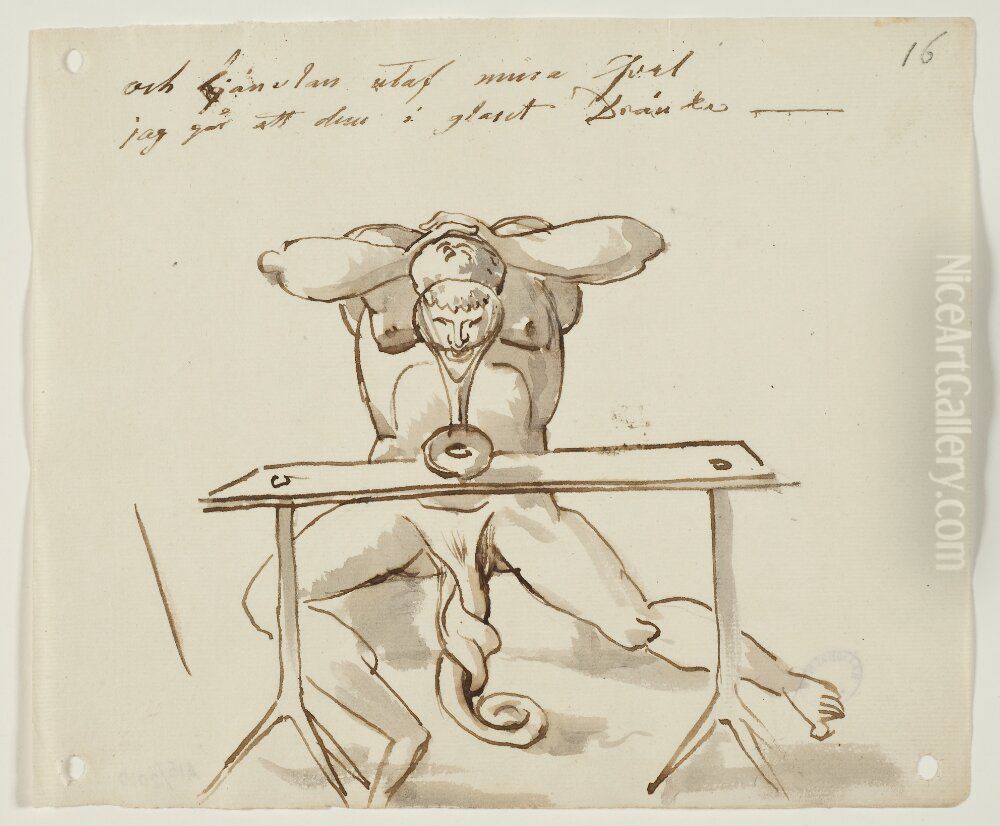 och känslan utaf mina
jag går att dem i glaset Dränka
16
NiceArtGallery.com